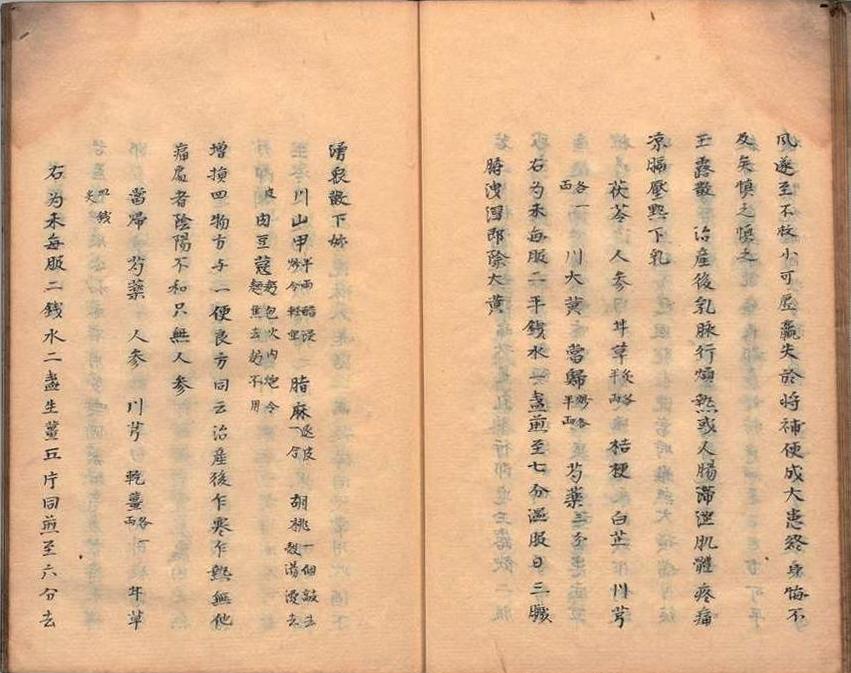 風遂至不救小可虛羸失於將補便成大患終身悔不
及矣慎之慎之
玉露散 治產後乳脉行煩熱或人腸滯澀肌體疼痛
凉膈壓熱下乳
茯苓 人參 甘草半兩炙各 桔梗 白芷 川芎
各一兩 川大黃 當歸 芍藥三分
右为末每服二平錢水一盞煎至七分温服日三
時洩瀉即除大黃
湧泉散下妳
川山甲半兩醋浸 脂麻退皮一合 胡桃一個敲去
皮 肉豆蔻麪包火内炮令麪焦去麪不用
增損四物方与一便良方同云治產後乍寒乍熱無他
痛處者陰陽不和只無人參
當歸 芍藥 人參 川芎 乾薑各一兩 甘草
四錢炙
右为末每服二錢水二盞生薑五片同煎至六分去